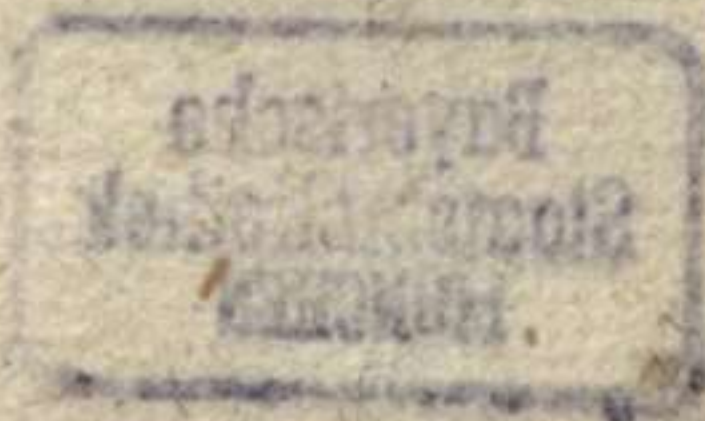 Bayerische
Staatsbibliothek
MÜNCHEN